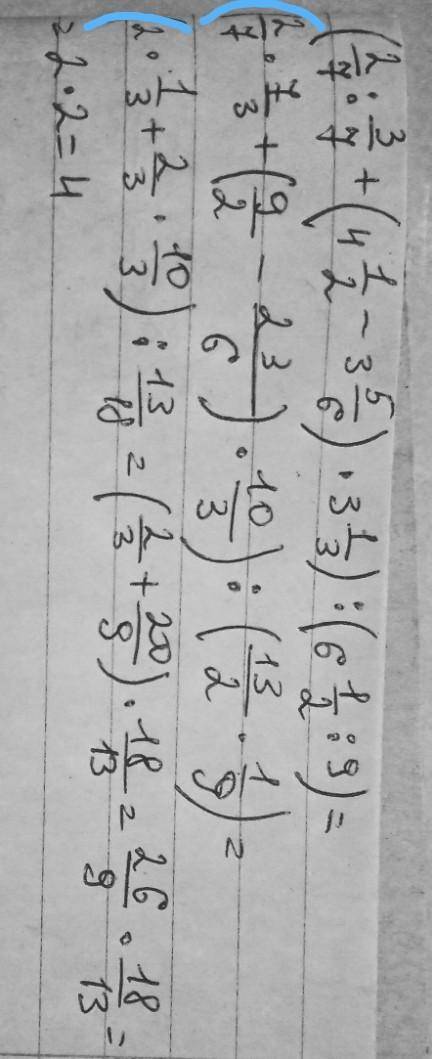 (2/7 : 3/7 + (4 1/2 - 3 5/6) · 3 1/3) : (6 1/2 : 9) =
2/7 · 7/3 + (9/2 - 23/6) · 10/3) : (13/2 · 1/9) =
2 · 1/3 + 2/3 · 10/3) : 13/18 = (2/3 + 20/9) · 18/13 = 26/9 · 18/13 =
= 2 · 2 = 4